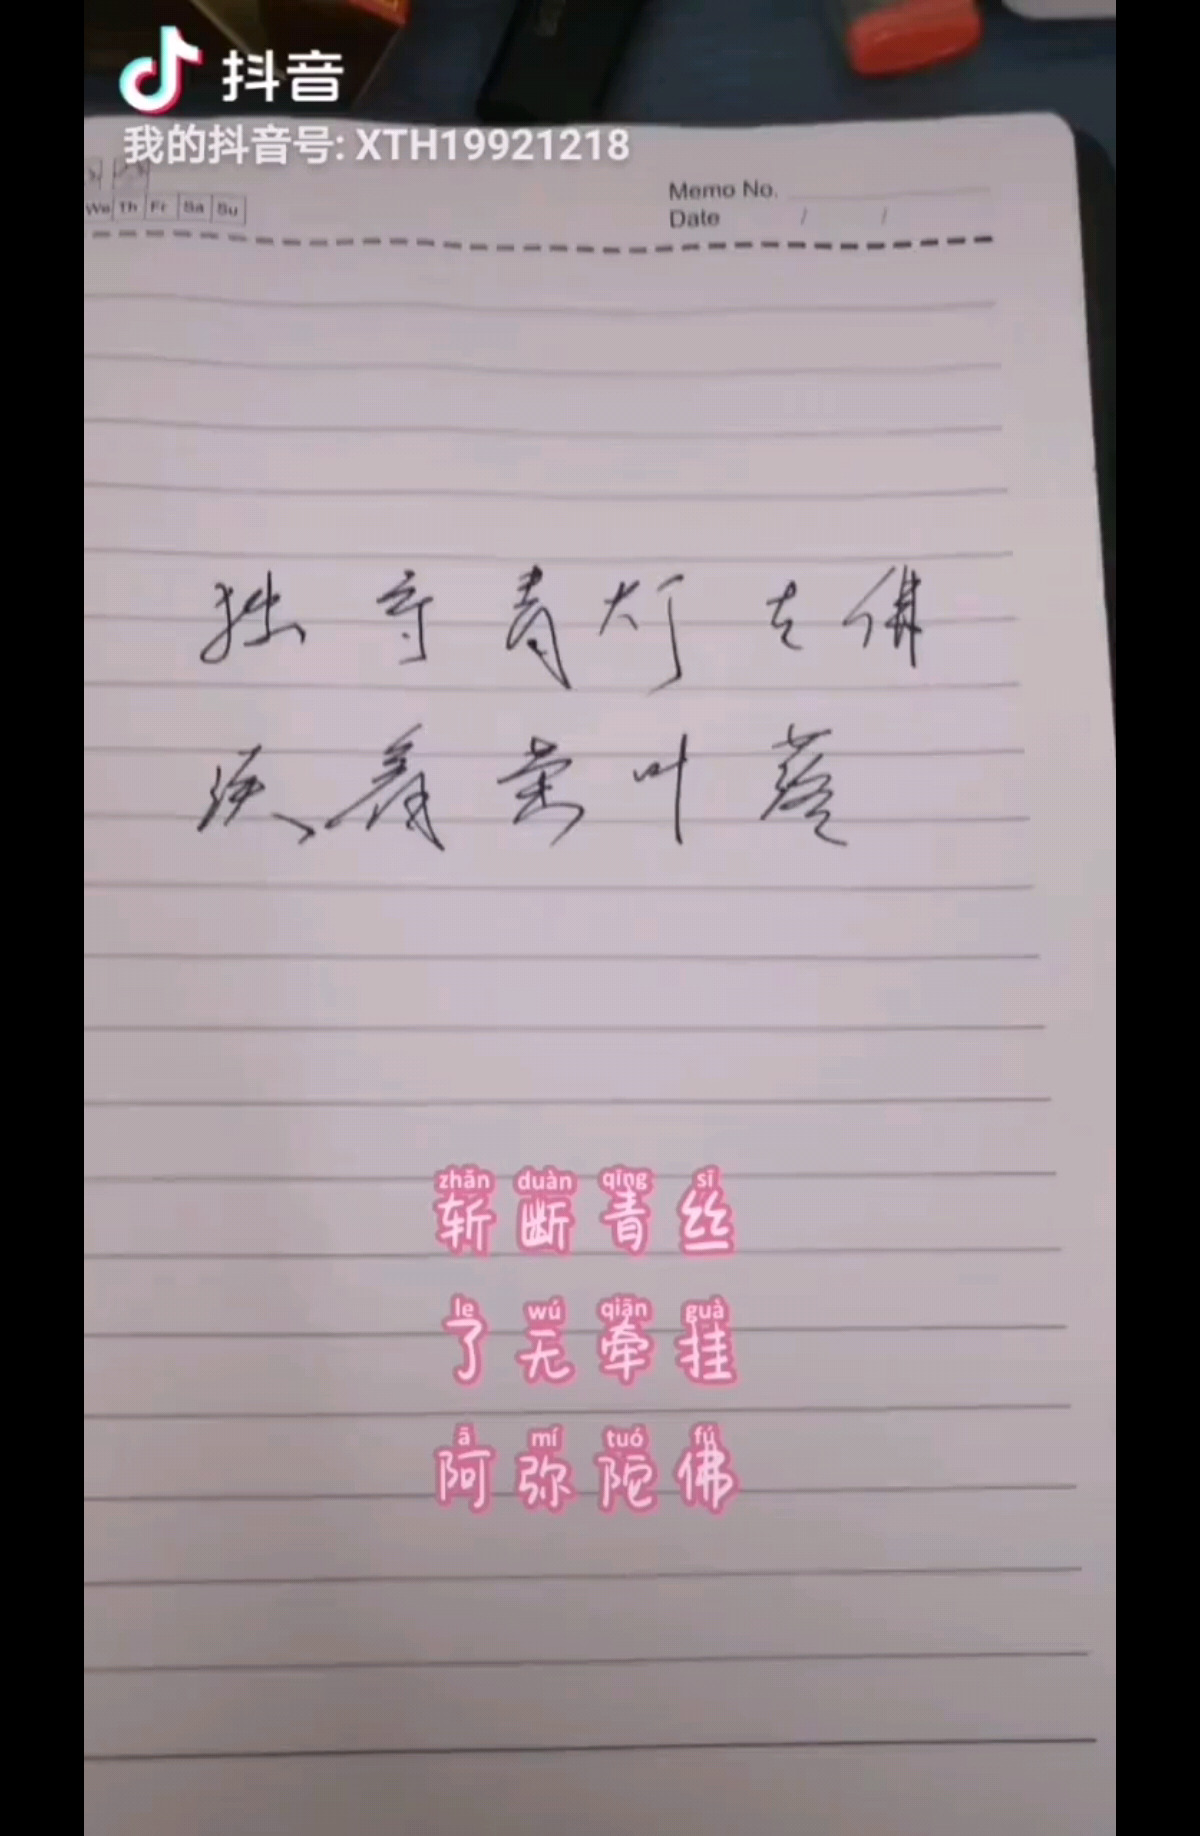 抖音
我的抖音号: XTH19921218
We Th Fr Sa Su
Memo No.
Date / /
独守青灯古佛
叶
zhǎn duàn qīng sī
斩断青丝
le wú qiān guà
了无牵挂
ā mí tuó fú
阿弥陀佛